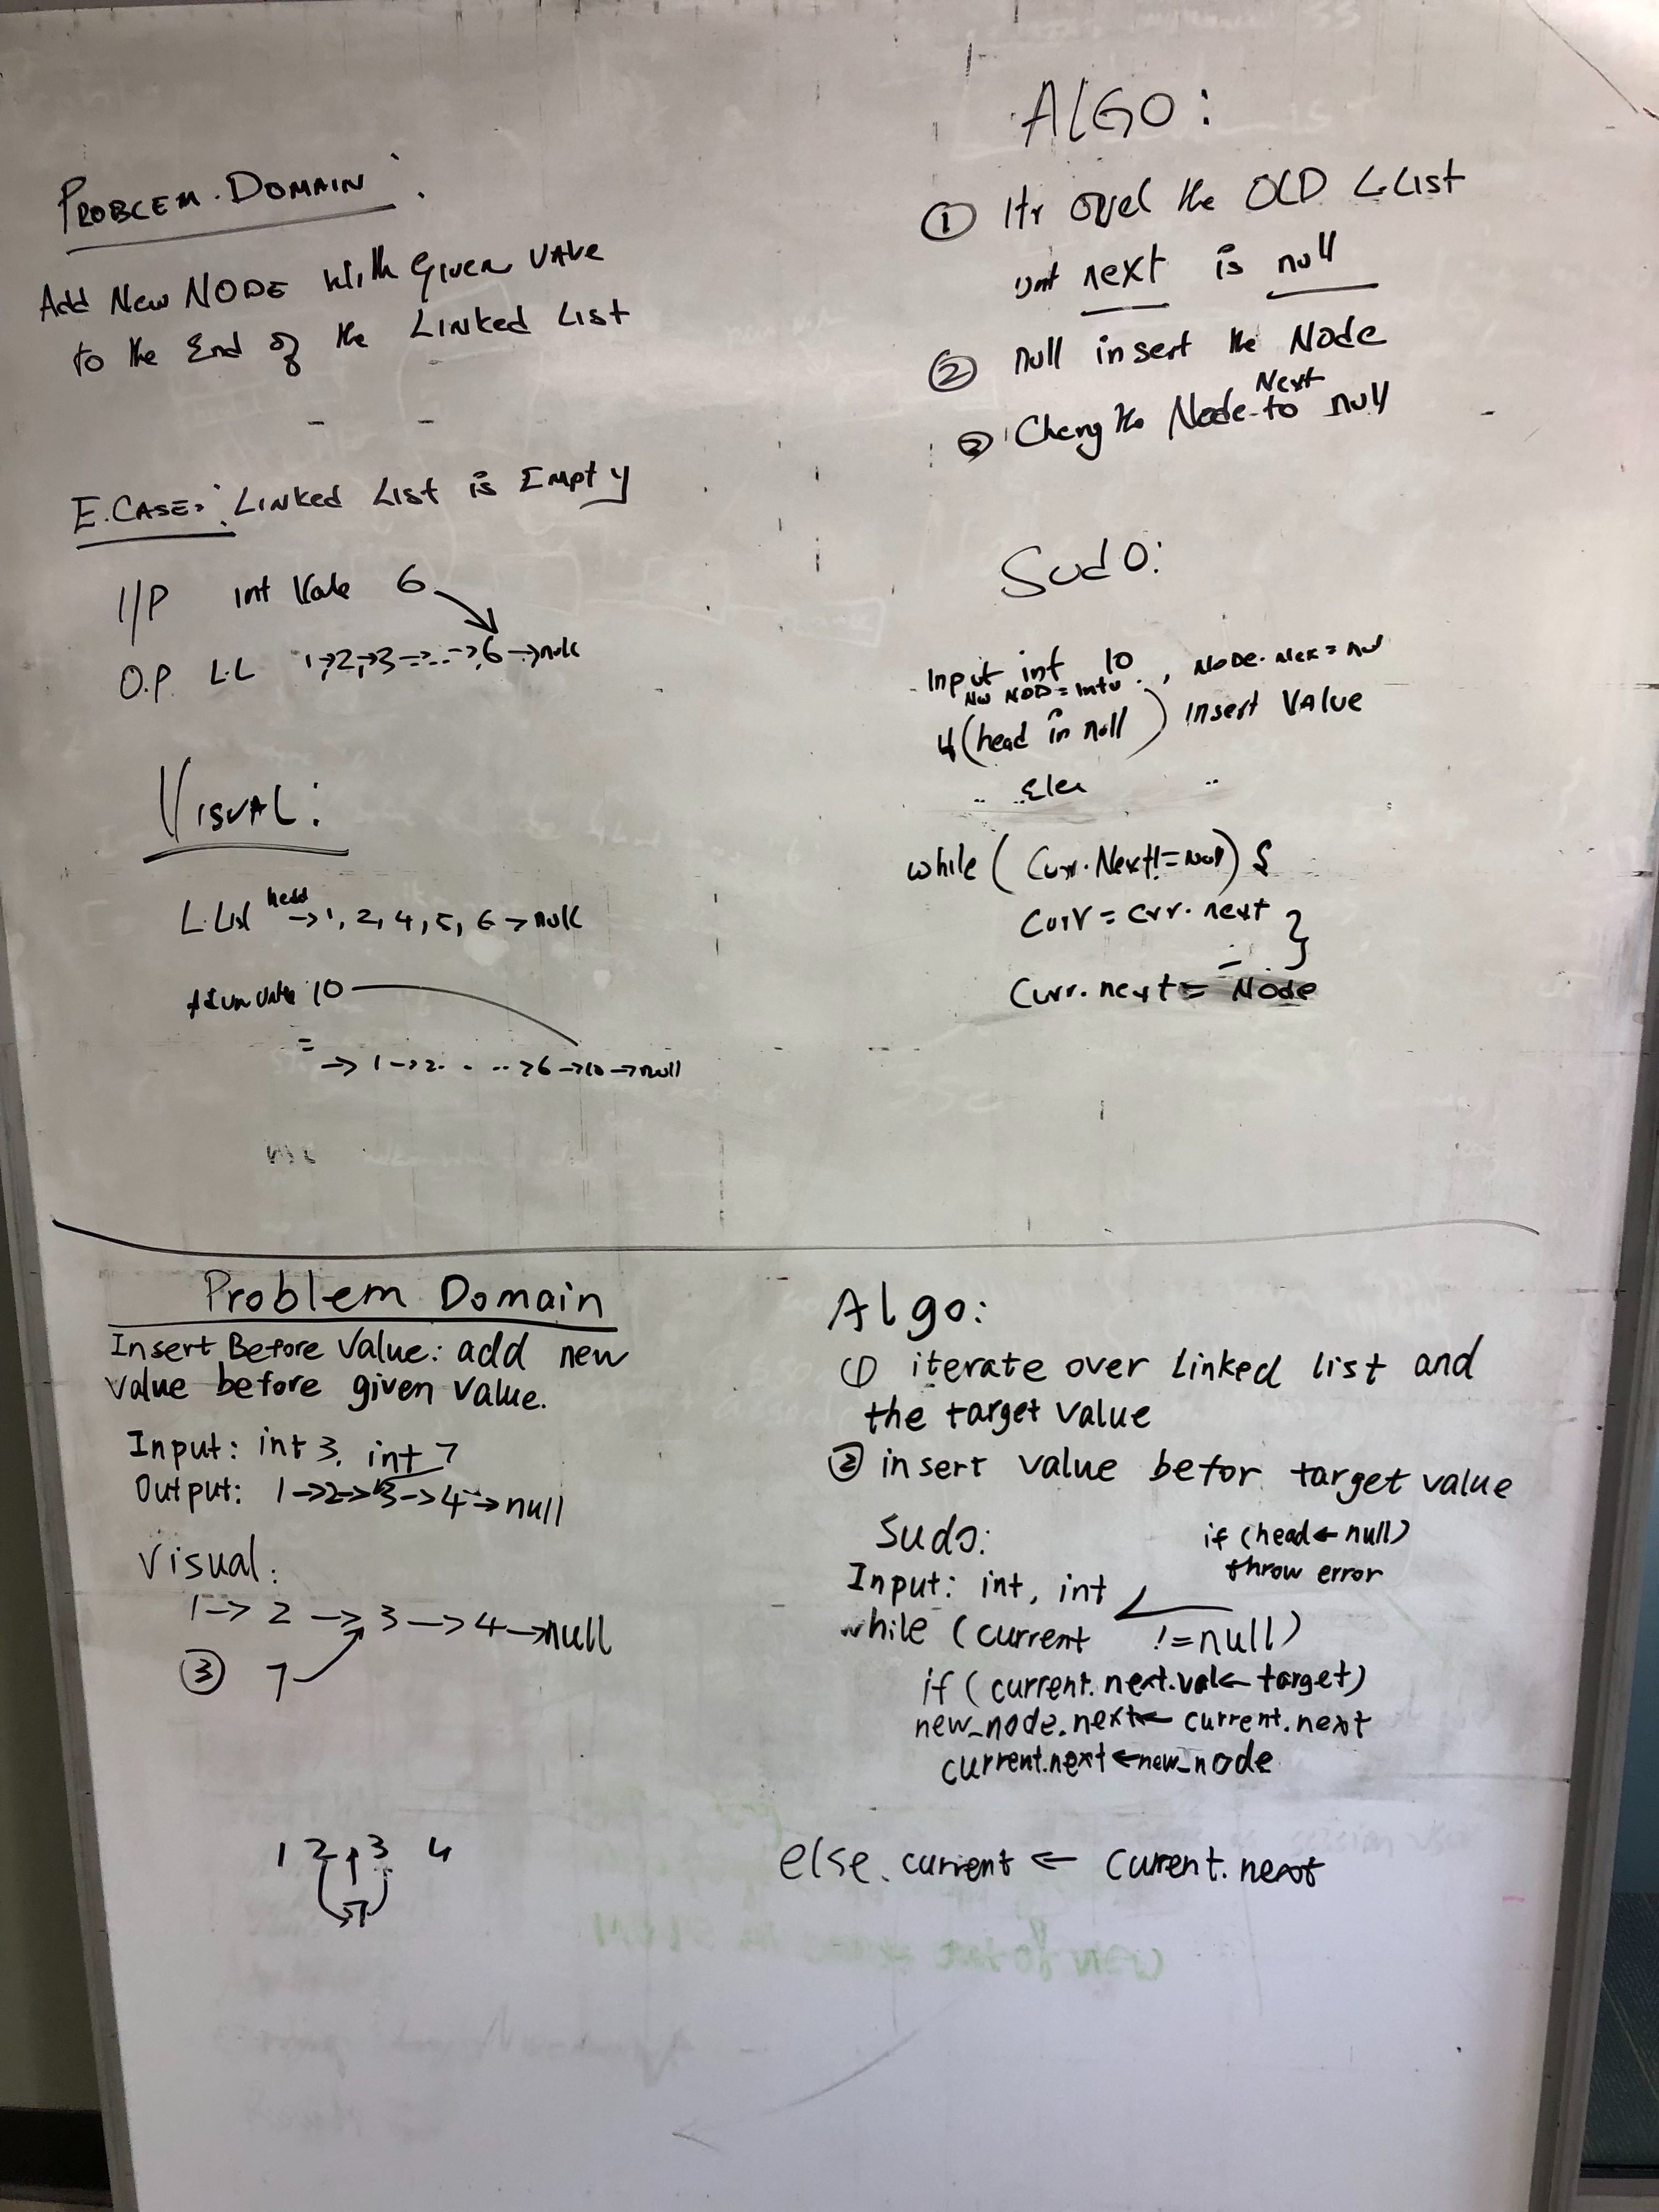 PROBLEM DOMAIN:
Add New NODE with Given value
to the End of the Linked List
E.CASE: Linked List is Empty
I/P int Vale 6
O.P. L.L 1→2→3→...→6→null
VISUAL:
L.List head → 1, 2, 4, 5, 6 → null
10
= → 1→2. . ..→6→10→null
ALGO:
① Itr over the OLD L.List
unt next is null
② null insert the Node
③ Chang the Node Next to null
Sudo:
Input int 10, NODE.Nex = nul
Nw NOD = intv
if (head in null) insert Value
Else
while (Curr.Next != Null) {
Curr = crr.next }
Curr.next = Node
Problem Domain
Insert Before Value: add new
value before given value.
Input: int 3, int 7
Output: 1→2→3→4→null
Visual:
1→ 2 → 3 → 4→null
③ 7
1 2 3 4
7
Algo:
① iterate over Linked list and
the target value
② insert value befor target value
Sudo:
if (head ← null)
throw error
Input: int, int
while (current != null)
if (current.next.val ← target)
new_node.next ← current.next
current.next ← new_node
else. current ← curent.next